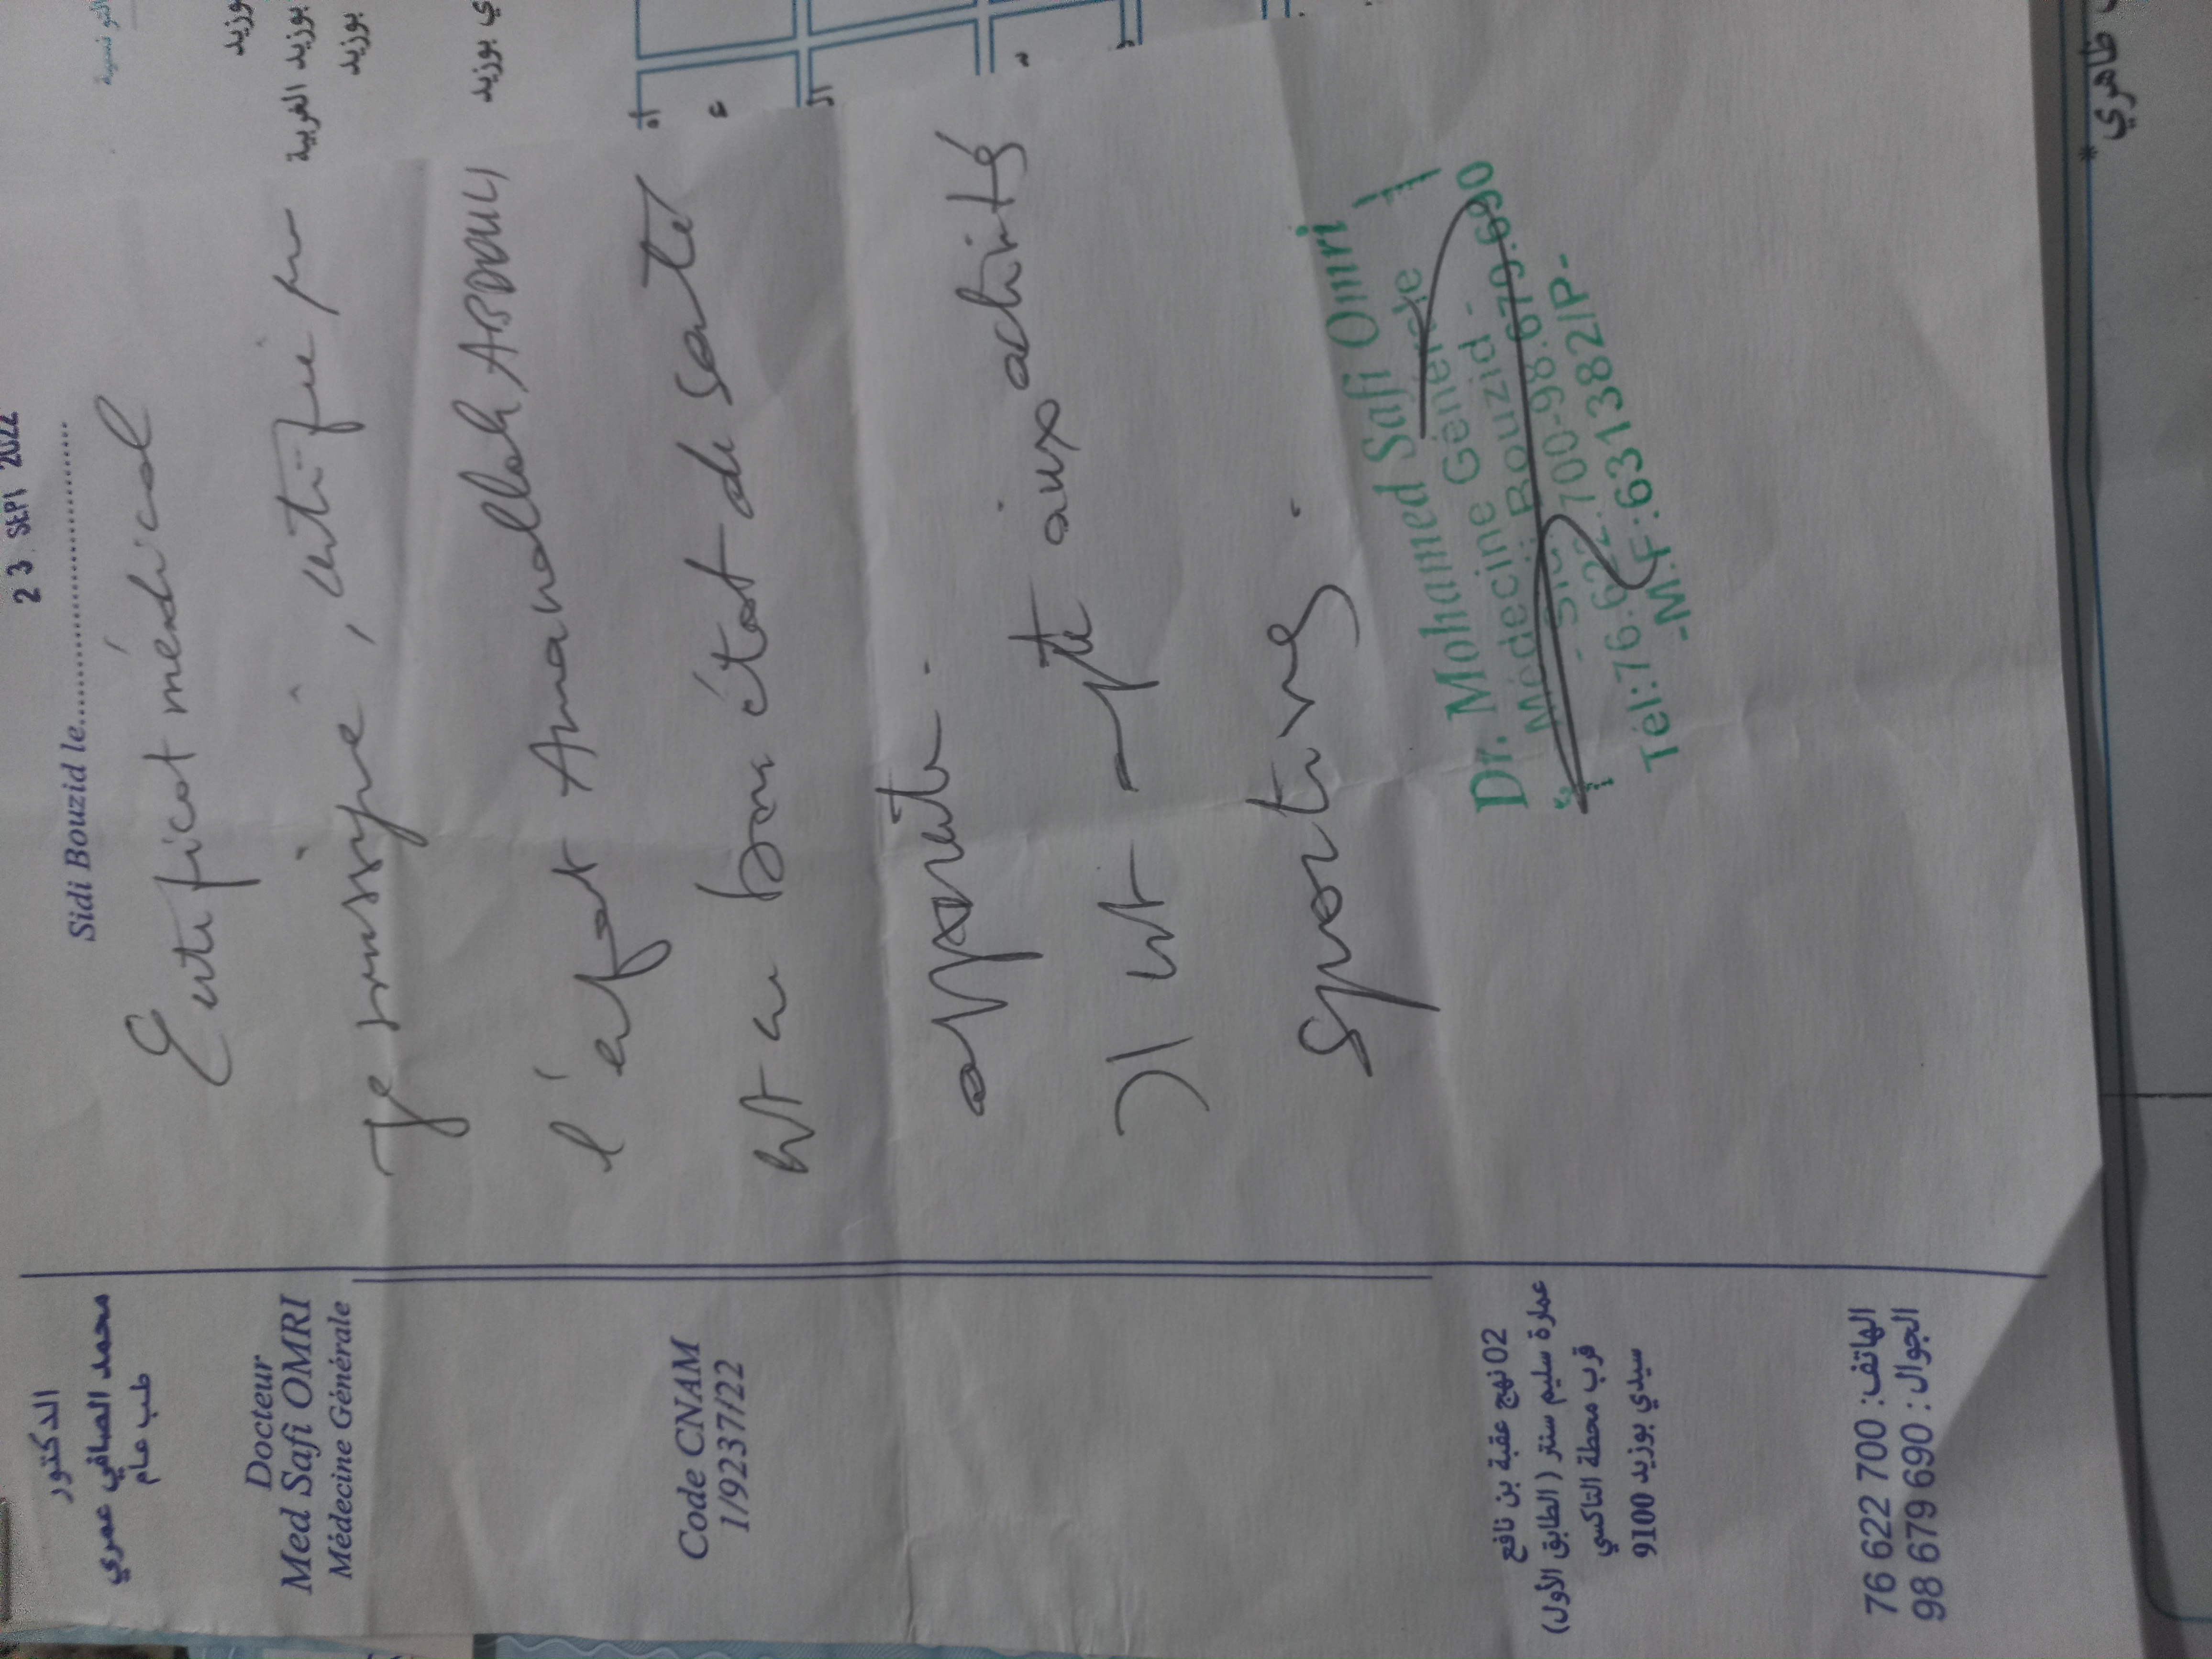 الدكتور
محمد الصافي عمري
طب عام
Docteur
Med Safi OMRI
Médecine Générale
Code CNAM
1/92237/22
02 نهج عقبة بن نافع
عمارة سليم سنتر (الطابق الأول)
قرب محطة التاكسي
سيدي بوزيد 9100
الهاتف: 76 622 700
الجوال: 98 679 690
23 SEPT 2022
Sidi Bouzid le
Certificat médical
Je soussigné, certifie que
l'enfant Amanallah ABDOULI
est en bon état de santé
apparente.
Il est apte aux activités
sportives.
Dr. Mohamed Safi Omri
Médecine Générale
Médecin Bouzid -
700-98.679.690
Tél:76.622.
-M.F:631382/P-
التونسية
بوزيد
بوزيد الغربية
بوزيد
ي بوزيد
ظاهري *